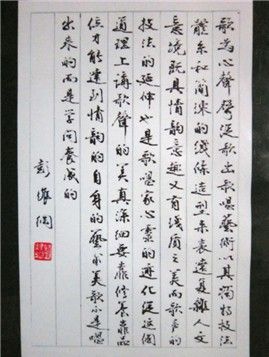 歌为心声声从歌出歌唱艺术以其独特技法
体系和简洁的线条造型来表达复杂人文
意境既具情韵意趣又有线质之美而歌声的
技法的延伸也是歌唱家心灵的迹化从这个
道理上讲歌声的美真深细要靠修养靠品
位才能达到情韵的自身的艺术美歌不是唱
出来的而是学问养成的
彭